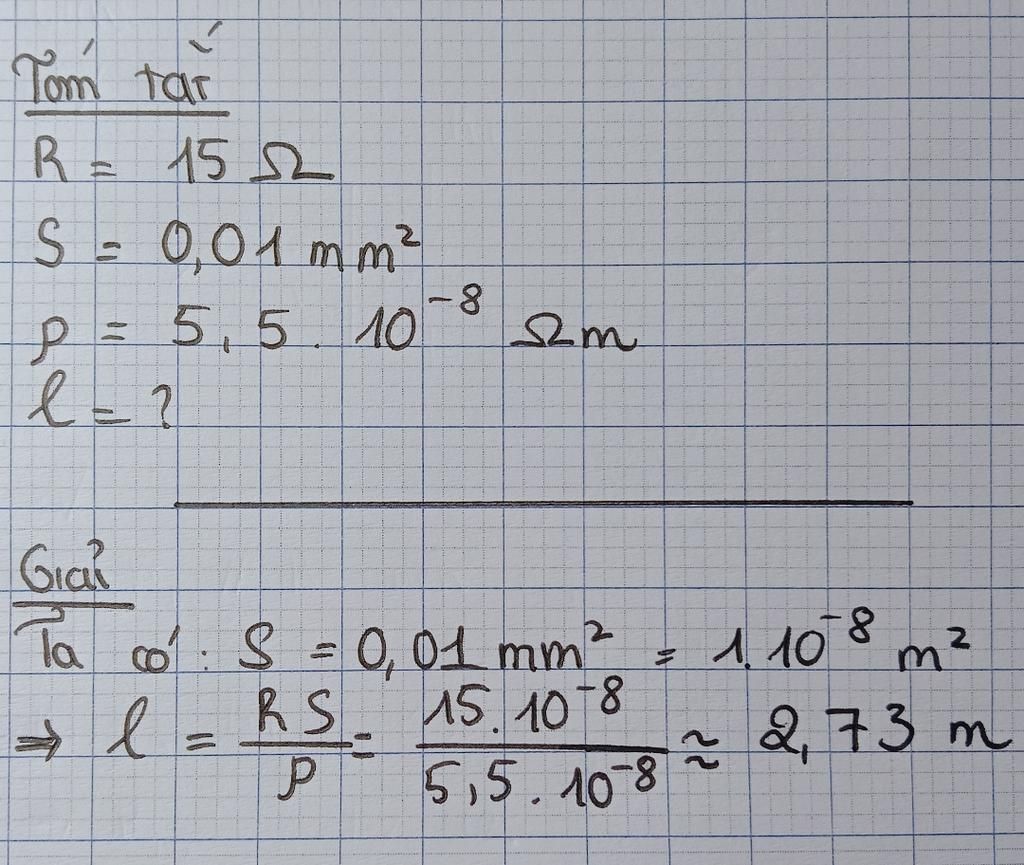 Tóm tắt
R = 15 Ω
S = 0,01 mm²
ρ = 5,5 . 10⁻⁸ Ωm
l = ?
Giải
Ta có : S = 0,01 mm² = 1.10⁻⁸ m²
⇒ l = RS/ρ = 15.10⁻⁸/5,5.10⁻⁸ ≈ 2,73 m